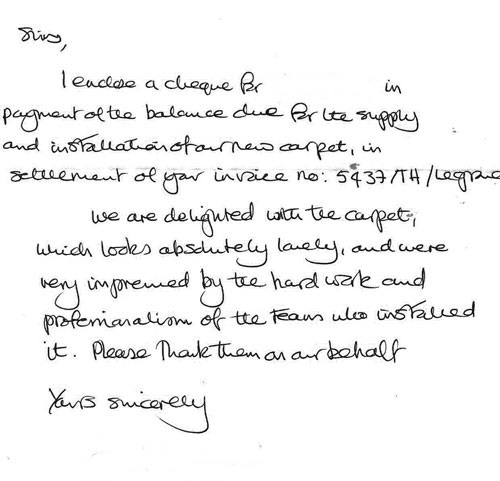 Sirs,
I enclose a cheque for in
payment of the balance due for the supply
and installation of our new carpet, in
settlement of your invoice no: 5437/TH/Legrand
We are delighted with the carpet,
which looks absolutely lovely, and were
very impressed by the hard work and
professionalism of the team who installed
it. Please thank them on our behalf
Yours sincerely